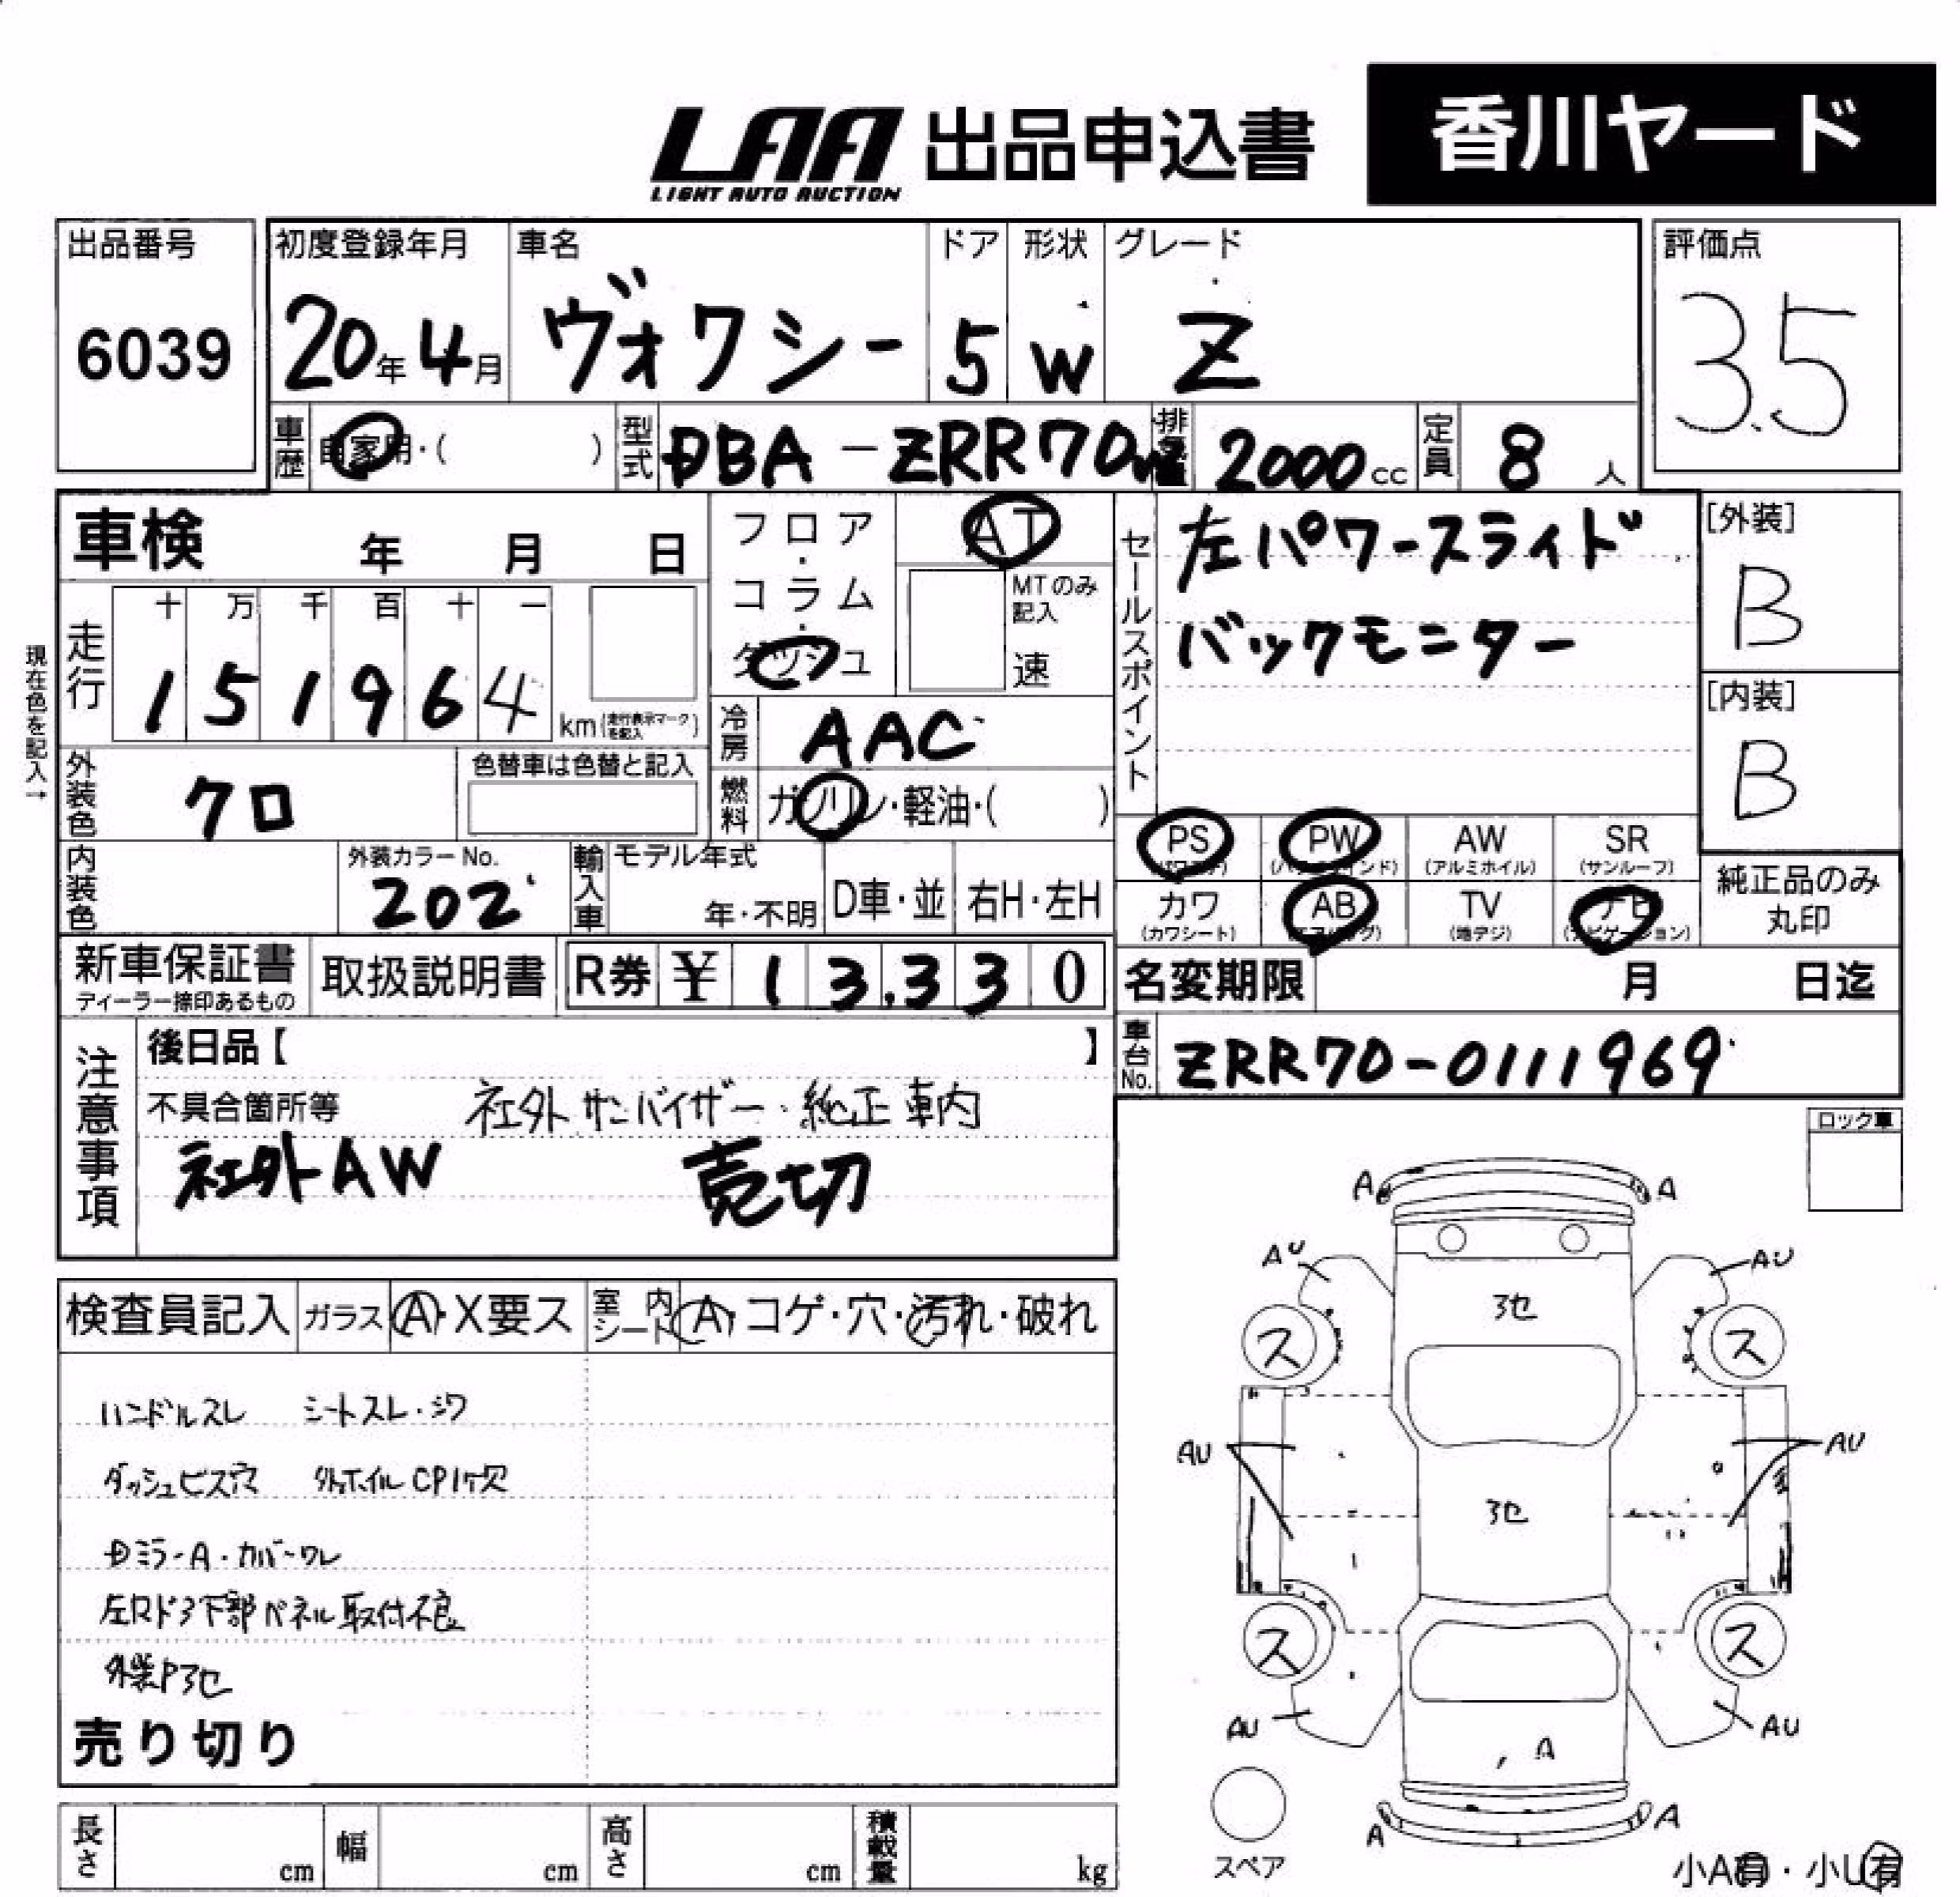 LAA 出品申込書 香川ヤード
LIGHT AUTO AUCTION
出品番号 初度登録年月 車名 ドア 形状 グレード 評価点
6039 20年4月 ヴォクシー 5 W Z 3.5
車歴 自家用・( ) 型式 DBA-ZRR70W 排気量 2000cc 定員 8人
車検 年 月 日
フロア・コラム・ダッシュ
AT
MTのみ記入
速
セールスポイント
左パワースライド
バックモニター
[外装]
B
[内装]
B
現在色を記入→
走行 十 万 千 百 十 一
1 5 1 9 6 4 km (走行表示マークを記入)
冷房 AAC
外装色 クロ 色替車は色替と記入
燃料 ガソリン・軽油・( )
PS (パワステ) PW (パワーウインド) AW (アルミホイル) SR (サンルーフ)
カワ (カワシート) AB (エアバッグ) TV (地デジ) ナビ (ナビゲーション)
純正品のみ
丸印
内装色 外装カラーNo. 202 輸入車 モデル年式 年・不明 D車・並 右H・左H
新車保証書 ディーラー捺印あるもの 取扱説明書 R券 ¥ 13,330
名変期限 月 日迄
車台No. ZRR70-0111969
注意事項
後日品【 】
不具合箇所等 社外サンバイザー・純正車内
社外AW 売切
ロック車
検査員記入 ガラス A・X要ス 室内シート A・コゲ・穴・汚れ・破れ
ハンドルスレ シートスレ・シワ
ダッシュビス穴 外ホイルCP1ケ欠
Dミラ-A・カバーワレ
左Rドア下部パネル取付不良
売り切り
A A
AU AU
ス ス
AU AU
ス ス
AU AU
A
A A
スペア
小A有・小U有
長さ cm 幅 cm 高さ cm 積載量 kg